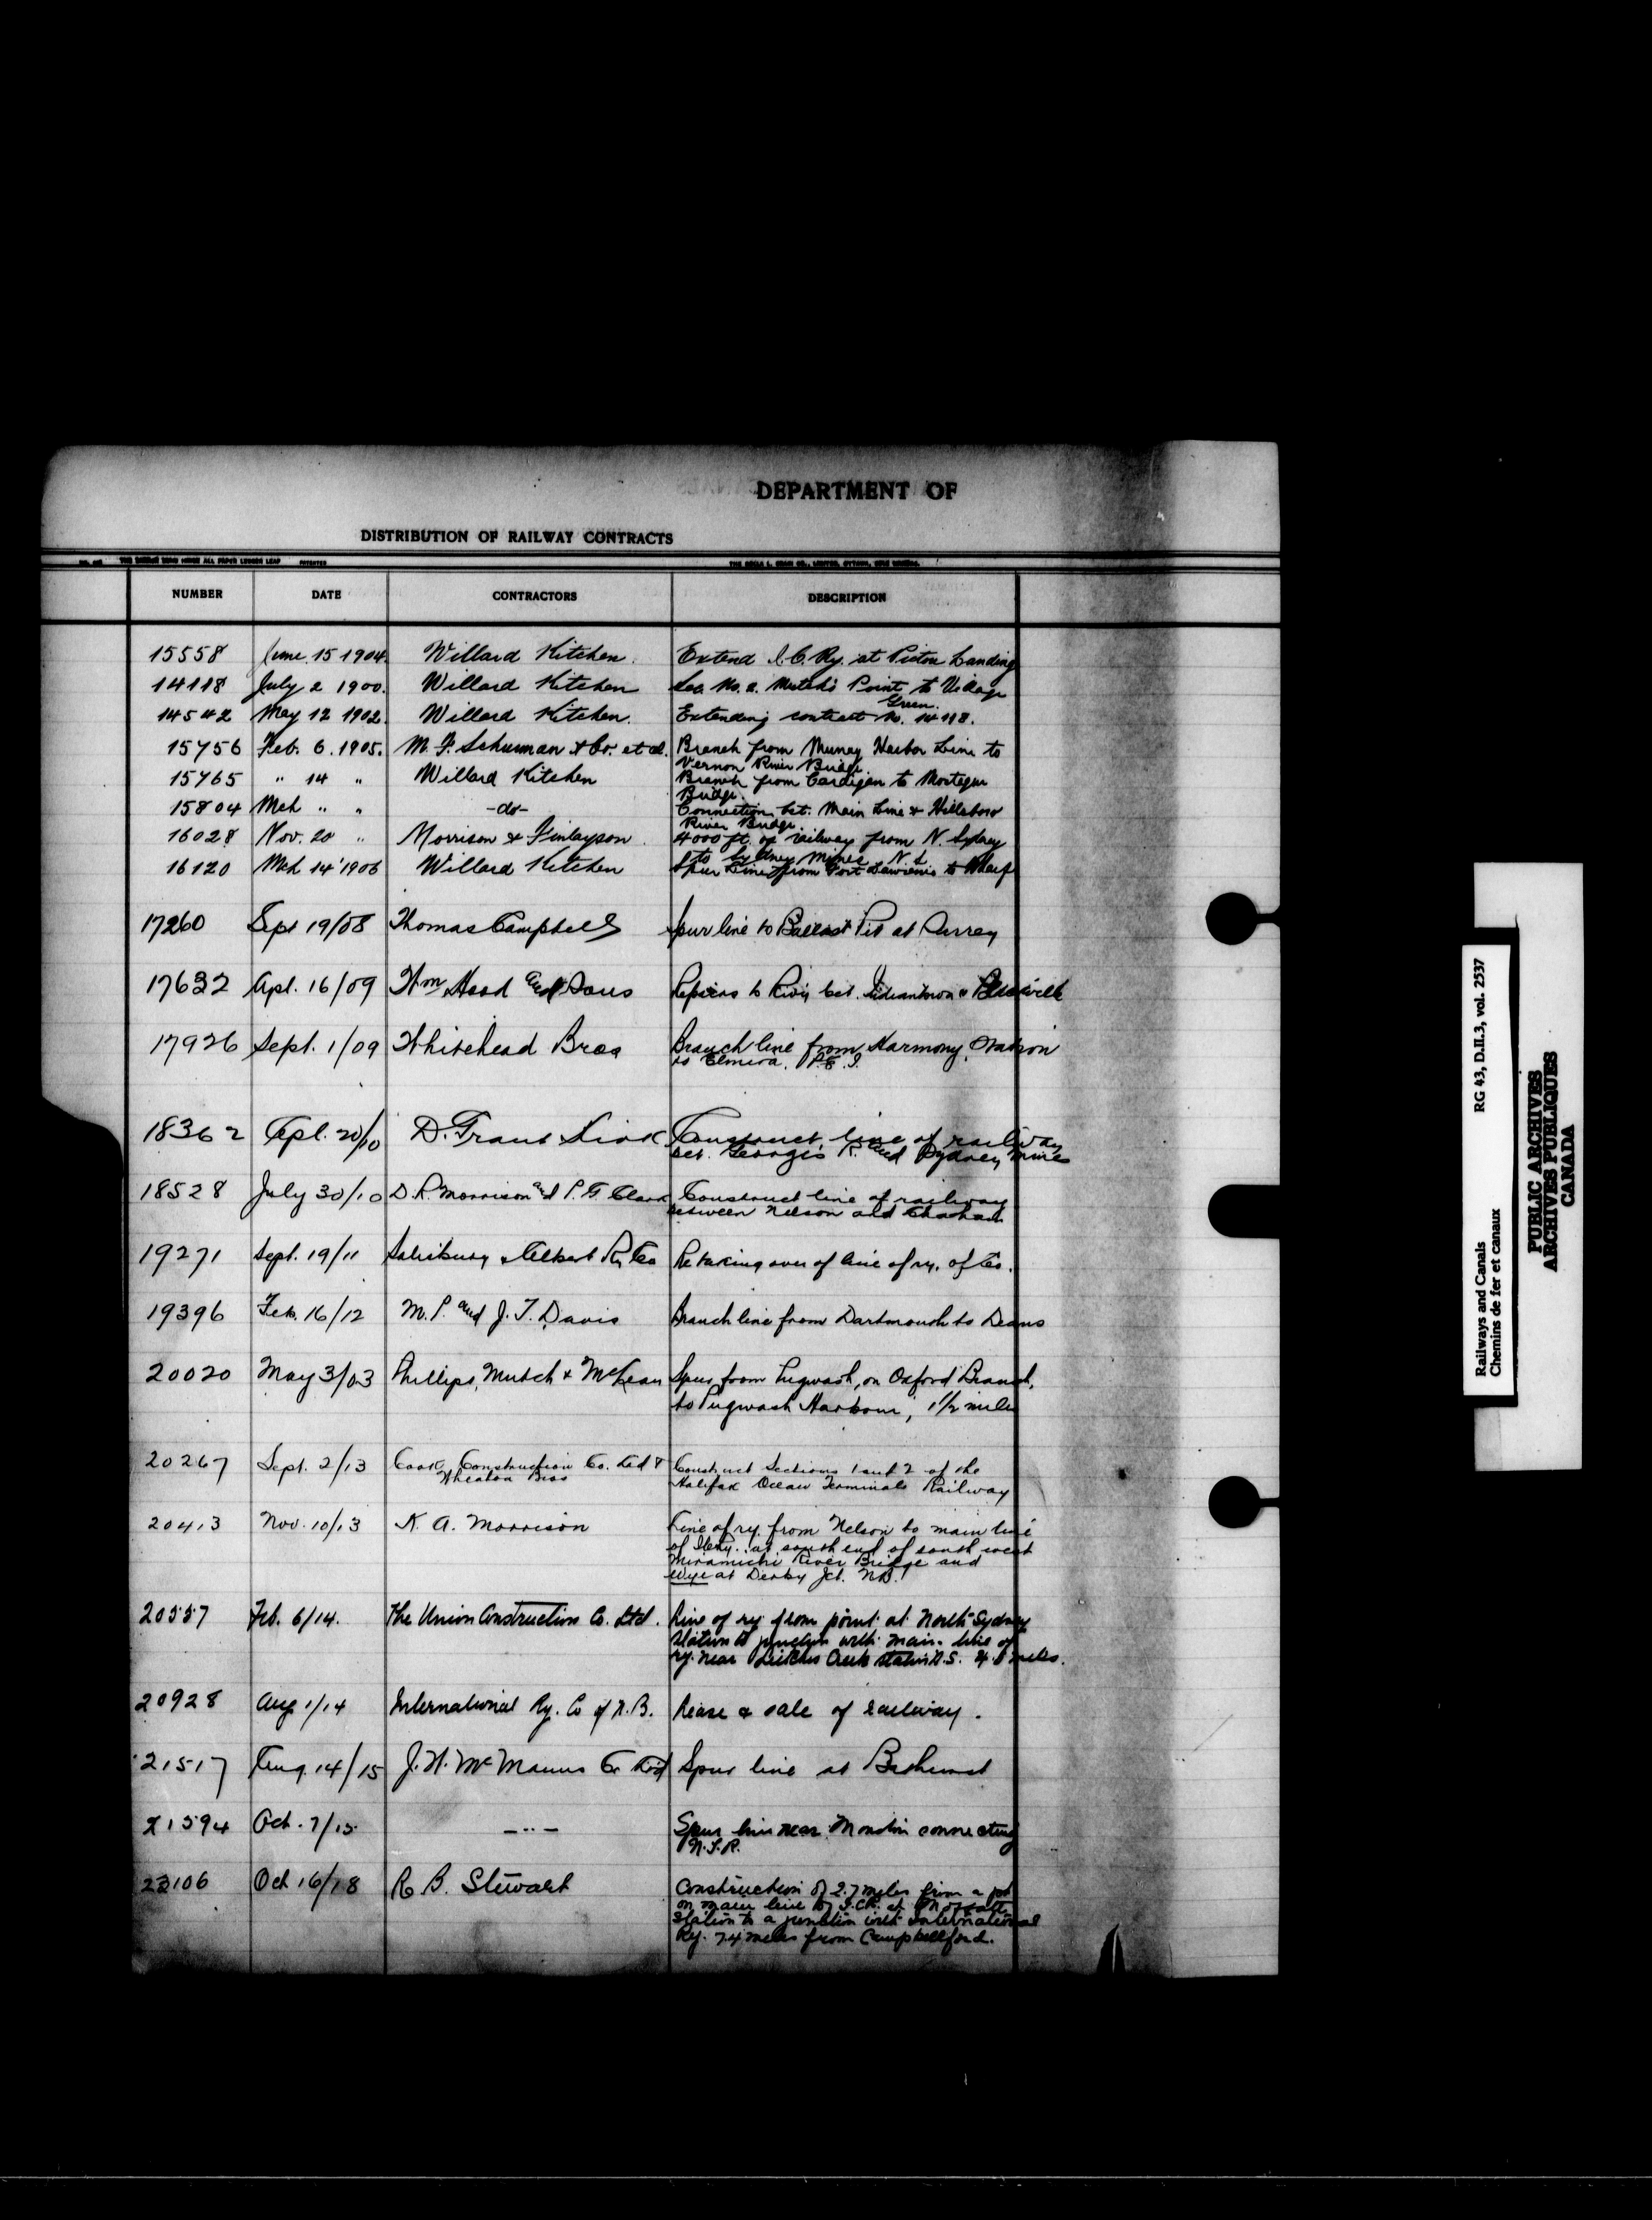 DEPARTMENT OF
DISTRIBUTION OF RAILWAY CONTRACTS
NUMBER DATE CONTRACTORS DESCRIPTION
15558 June 15 1904 Willard Kitchen. Extend I.C. Ry. at Pictou Landing
14118 July 2 1900. Willard Kitchen Sec No. 2. Mutch's Point to Village
Green.
14542 May 12 1902. Willard Kitchen. Extending contract No. 14118.
15756 Feb. 6. 1905. M. F. Schurman & Co. et al. Branch from Murray Harbor Line to
Vernon River Bridge.
15765 " 14 " Willard Kitchen Branch from Cardigan to Montague
Bridge.
15804 Mch " " -do- Connection bet. Main Line & Hillsboro
River Bridge.
16028 Nov. 20 " Morrison & Finlayson. 4000 ft. of railway from N. Sydney
to Sydney Mines N.S.
16120 Mch 14 '1906 Willard Kitchen Spur Line from Fort Lawrence to Wharf
17260 Sept 19/08 Thomas Campbell Spur line to Ballast Pit at
17632 Apl. 16/09 Wm Hood and Sons Repairs to Rwy bet. Indiantown &
17926 Sept. 1/09 Whitehead Bros Branch line from Harmony Station
to Elmira. P.E.I.
18362 Apl. 20/10 D. Grant Construct line of railway
bet. Georges R. and Sydney Mines
18528 July 30/10 D.R. Morrison and P. G. Clark Construct line of railway
between Nelson and Chatham
19271 Sept. 19/11 Salisbury & Albert Ry Co Re taking over of line of ry. of Co.
19396 Feb. 16/12 M.P. and J.T. Davis Branch line from Dartmouth to Deans
20020 May 3/03 Phillips, Mutch & McLean Spur from Pugwash, on Oxford Branch,
to Pugwash Harbour, 1 1/2 miles
20267 Sept. 2/13 Cook Construction Co. Ltd & Construct Sections 1 and 2 of the
Wheaton Bros Halifax Ocean Terminals Railway
20413 Nov. 10/13 K. A. Morrison Line of ry. from Nelson to main line
of at south end of south west
Miramichi River Bridge and
Wye at Derby Jct. N.B.
20557 Feb. 6/14. The Union Construction Co. Ltd. Line of ry from point at North Sydney
Station to junction with main line of
ry. near Leitches Creek station N.S. 4.8 miles.
20928 Aug 1/14 International Ry. Co of N.B. Lease & sale of railway.
21517 Aug. 14/15 J. H. McManus Co Ltd Spur line at Bathurst
21594 Oct. 7/15 — " — Spur line near Moncton connecting
N.T.R.
23106 Oct 16/18 R B. Stewart Construction of 2.7 miles from a pt
on main line of I.C.R. at
Station to a junction with International
Ry. 7.4 miles from Campbellford.
RG 43, D.II.3, vol. 2537
Railways and Canals
Chemins de fer et canaux
PUBLIC ARCHIVES
ARCHIVES PUBLIQUES
CANADA